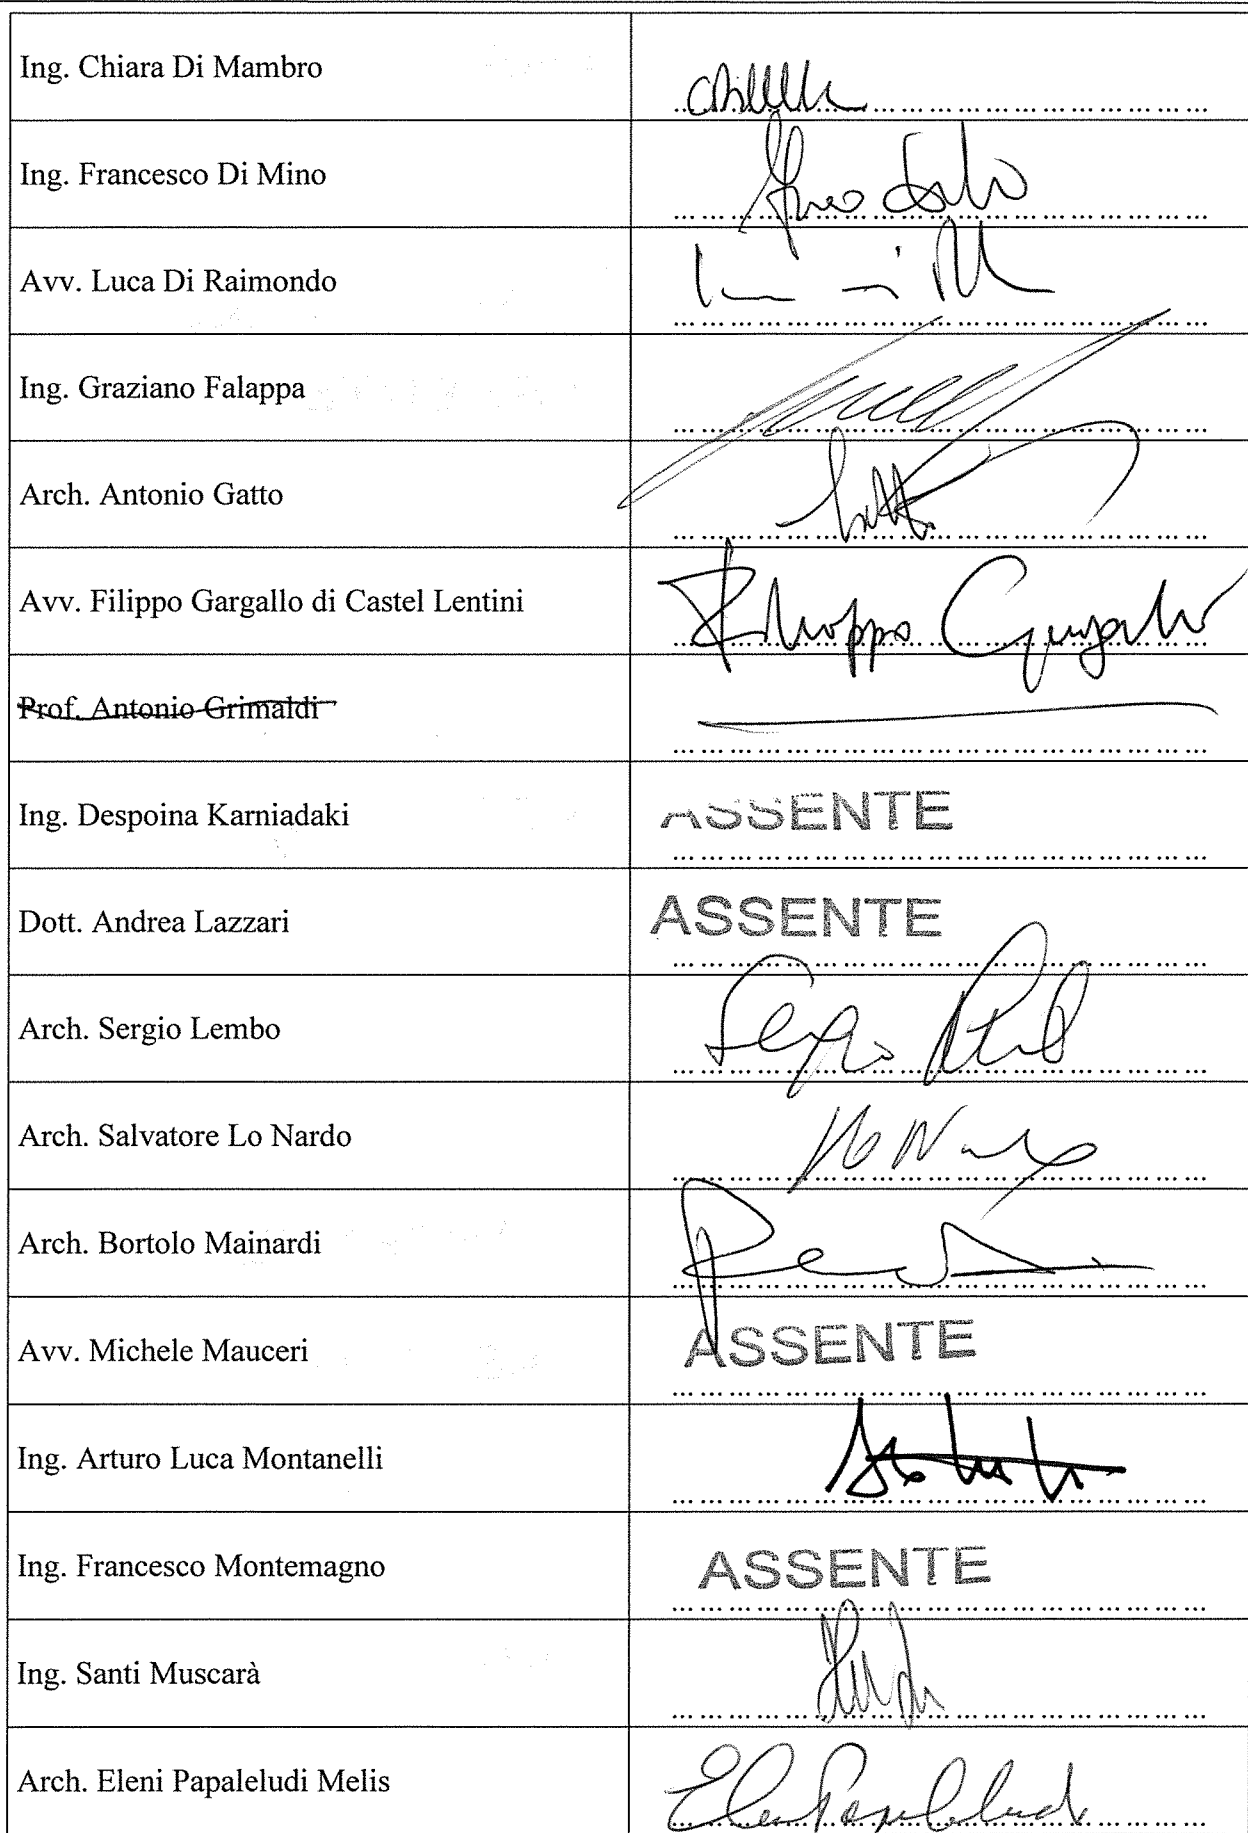 Ing. Chiara Di Mambro
Ing. Francesco Di Mino
Avv. Luca Di Raimondo
Ing. Graziano Falappa
Arch. Antonio Gatto
Avv. Filippo Gargallo di Castel Lentini
Filippo Gargallo
Prof. Antonio Grimaldi
Ing. Despoina Karniadaki
ASSENTE
Dott. Andrea Lazzari
ASSENTE
Arch. Sergio Lembo
Sergio
Arch. Salvatore Lo Nardo
Arch. Bortolo Mainardi
Avv. Michele Mauceri
ASSENTE
Ing. Arturo Luca Montanelli
Ing. Francesco Montemagno
ASSENTE
Ing. Santi Muscarà
Arch. Eleni Papaleludi Melis